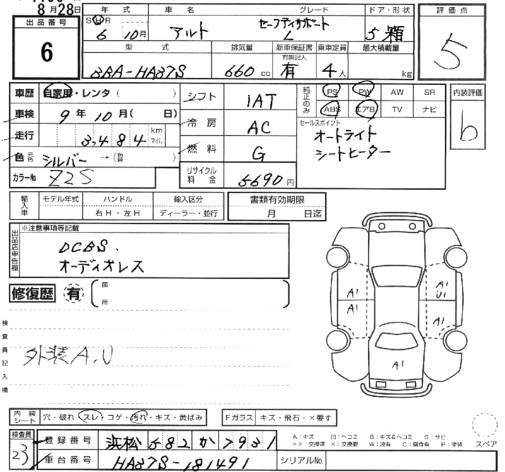 8月28日
出品番号 6
年式 車名 グレード ドア・形状
6年10月 アルト セーフティサポート L 5ドア
型式 排気量 新車保証書 乗車定員 最大積載量
3BA-HA37S 660cc 有 4人 kg
評価点 5
車歴 自家用・レンタ( )
車検 9年10月( 日)
走行 3,484 km マイル
色 シルバー→( )
カラーNo Z2S
シフト IAT
冷房 AC
燃料 G
リサイクル料金 5690円
純正のみ PS PW AW SR
ABS エアB TV ナビ
セールスポイント
オートライト
シートヒーター
内装評価 b
輸入車 モデル年式 ハンドル 輸入区分
右H・左H ディーラー・並行
書類有効期限
月 日迄
出品店申告欄
※注意事項等記載
DCBS.
オーディオレス
修復歴 有 箇所
検査員記入欄
外装A,U
A1 A1
A1
U1
A1
A1
内装シート 穴・破れ スレ・コゲ・汚れ・キズ・黄ばみ
Fガラス キズ・飛石・×要す
検査員 23
登録番号 浜松 582 か 7931
車台番号 HA37S-181491
シリアルNo
A:キズ U:ヘコミ
スペア